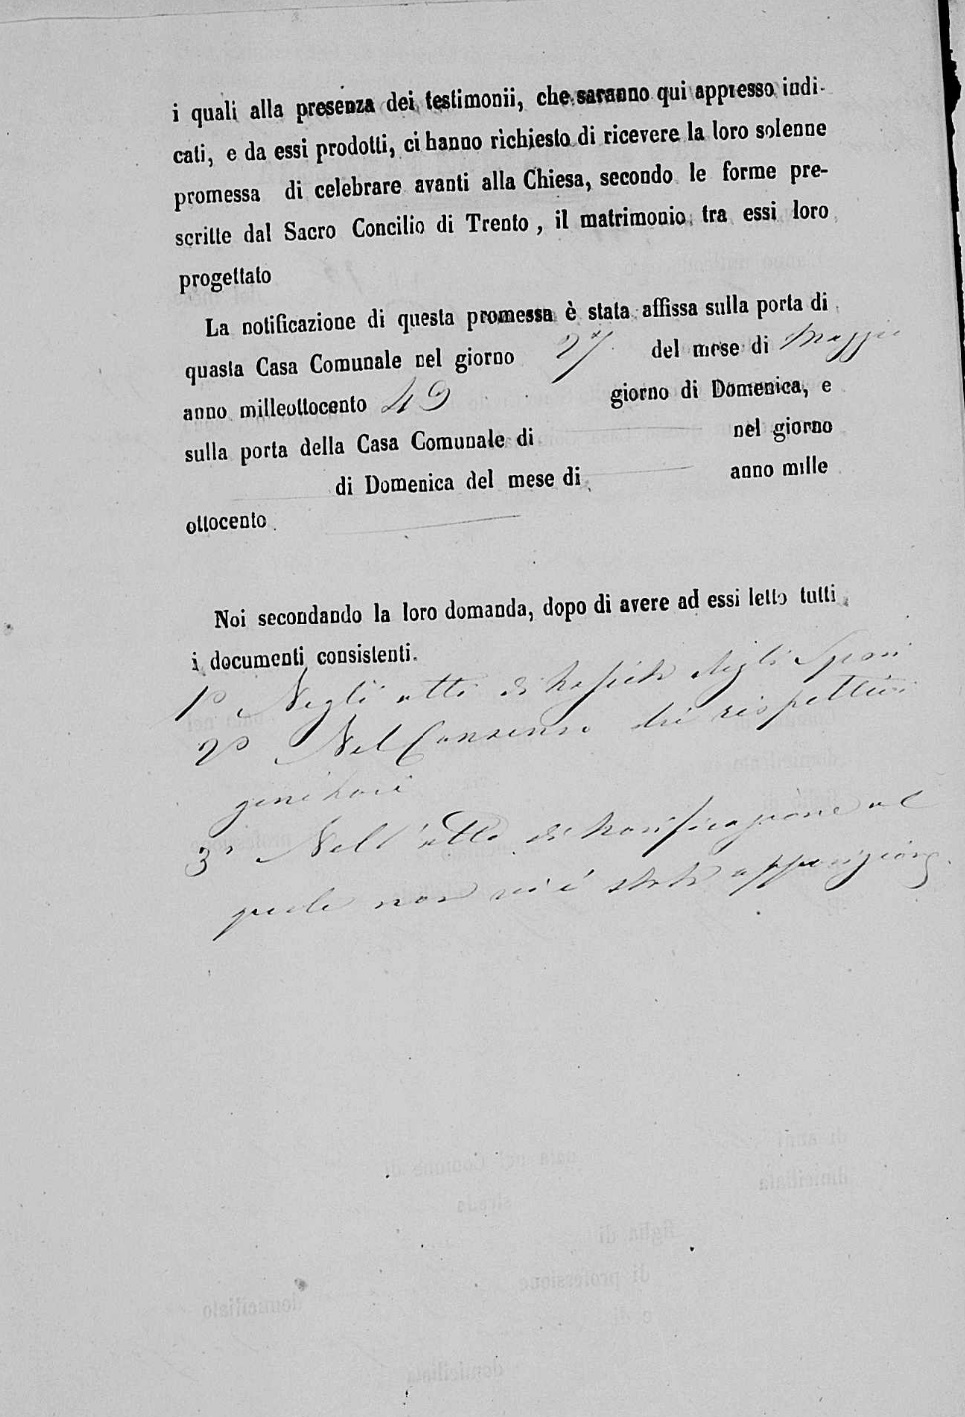 i quali alla presenza dei testimonii, che saranno qui appresso indi-
cati, e da essi prodotti, ci hanno richiesto di ricevere la loro solenne
promessa di celebrare avanti alla Chiesa, secondo le forme pre-
scritte dal Sacro Concilio di Trento, il matrimonio tra essi loro
progettato
La notificazione di questa promessa è stata affissa sulla porta di
quasta Casa Comunale nel giorno 27 del mese di Maggio
anno milleottocento 49 giorno di Domenica, e
sulla porta della Casa Comunale di nel giorno
di Domenica del mese di anno mille
ottocento
Noi secondando la loro domanda, dopo di avere ad essi letto tutti
i documenti consistenti.
1º Negli atti di Nascita degli Sposi
2º Nel Consenso dei rispettivi
genitori
3º Nell'atto di notificazione al
quale non vi è stata opposizione.